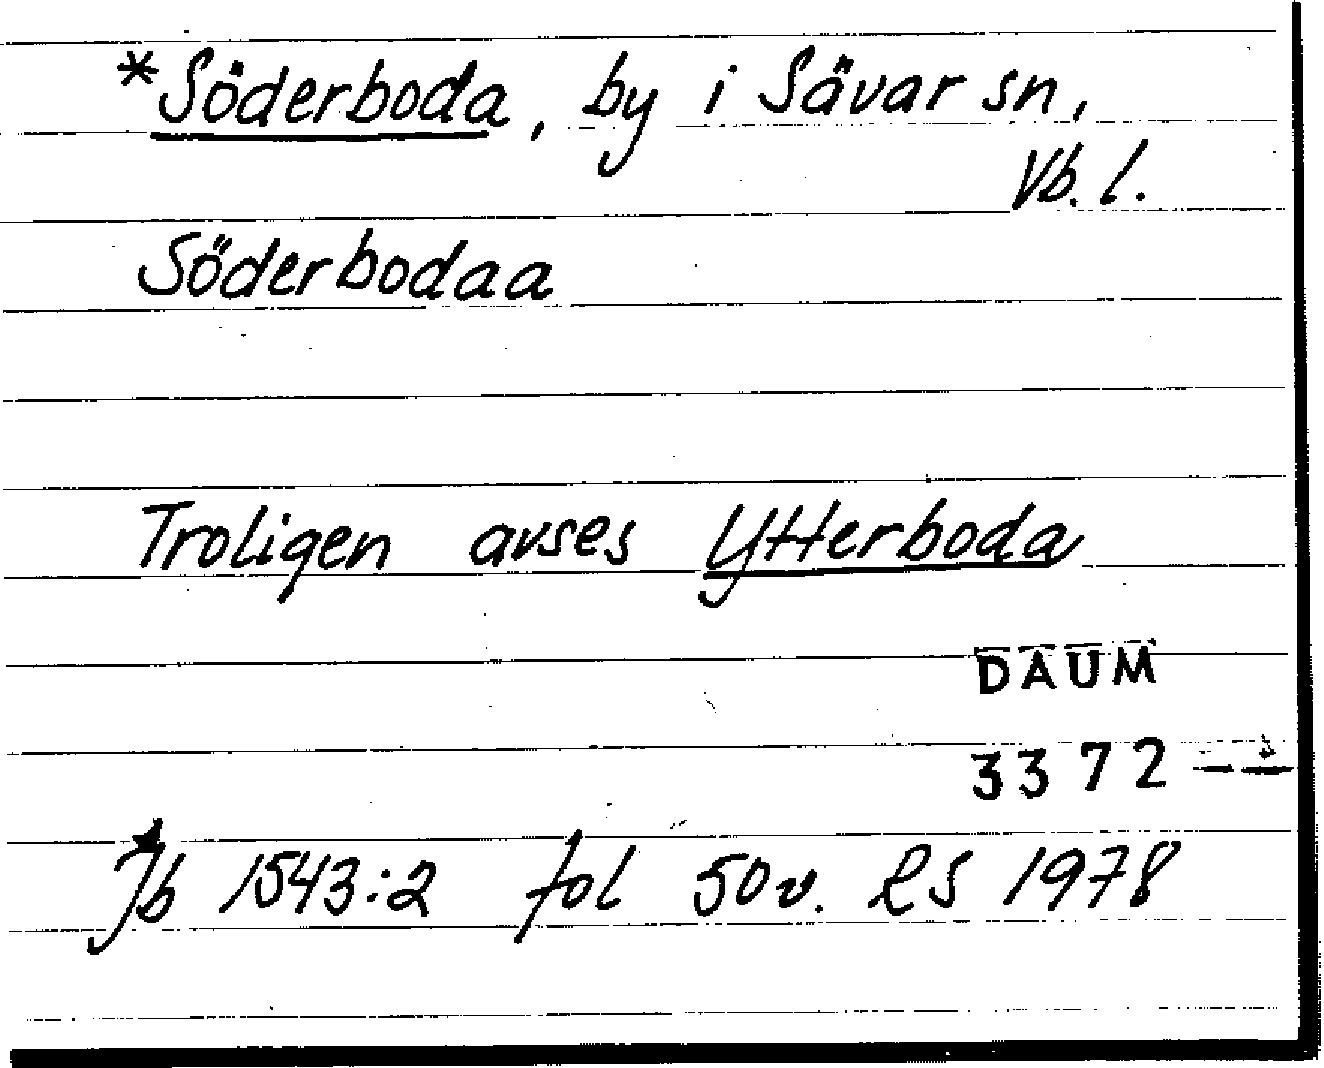 *Söderboda, by i Sävar sn,
Vb. l.
Söderbodaa
Troligen avses Ytterboda
DAUM
3372
Jb 1543:2 fol 50v. RS 1978